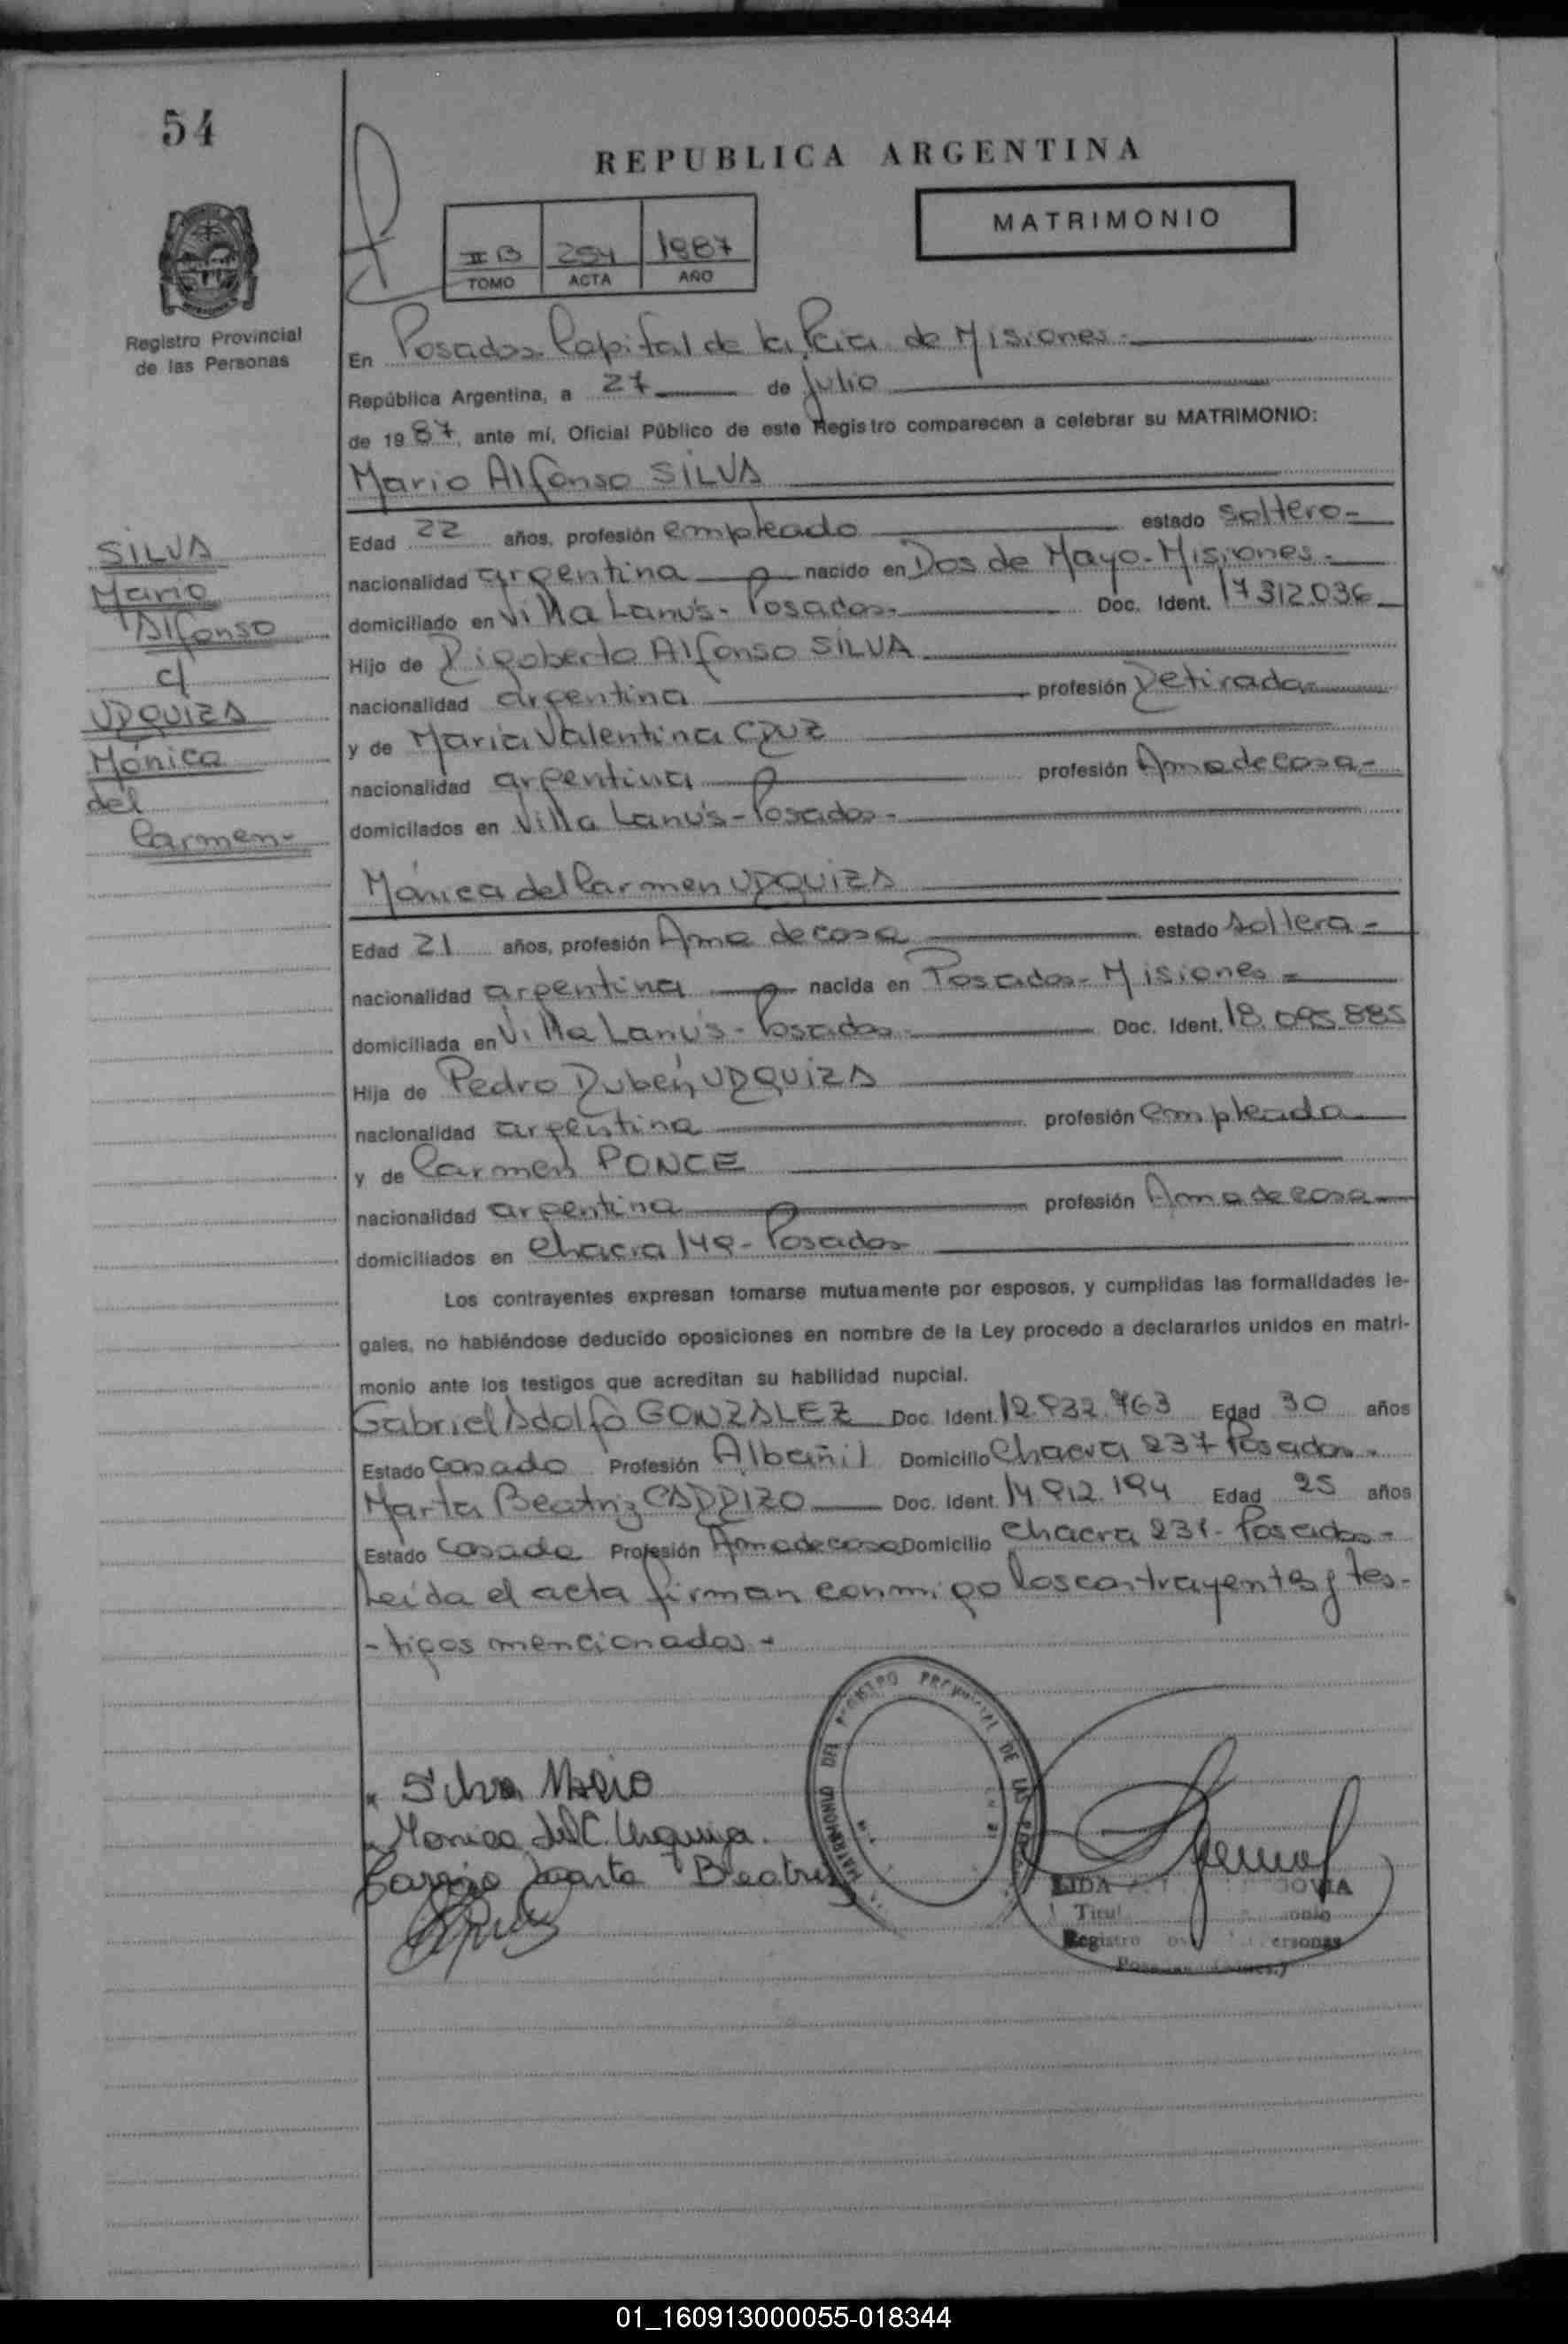 54
REPUBLICA ARGENTINA
MATRIMONIO
II B 254 1987
TOMO ACTA AÑO
Registro Provincial
de las Personas
En Posadas Capital de la Pcia de Misiones.-
República Argentina, a 27 de Julio
de 1987, ante mí, Oficial Público de este Registro comparecen a celebrar su MATRIMONIO:
Mario Alfonso SILVA
Edad 22 años, profesión empleado estado soltero-
nacionalidad argentina nacido en Dos de Mayo-Misiones.-
domiciliado en Villa Lanús- Posadas- Doc. Ident. 17312.036
Hijo de Rigoberto Alfonso SILVA
nacionalidad argentina profesión Retirado
y de María Valentina CRUZ
nacionalidad argentina profesión Ama de casa-
domicilados en Villa Lanús-Posadas-
SILVA
Mario
Alfonso
c/
URQUIZA
Mónica
del
Carmen-
Mónica del Carmen URQUIZA
Edad 21 años, profesión Ama de casa estado soltera-
nacionalidad argentina nacida en Posadas-Misiones-
domiciliada en Villa Lanús- Posadas- Doc. Ident. 18.095.885
Hija de Pedro Rubén URQUIZA
nacionalidad argentina profesión empleado
y de Carmen PONCE
nacionalidad argentina profesión Ama de casa
domiciliados en Chacra 149- Posadas
Los contrayentes expresan tomarse mutuamente por esposos, y cumplidas las formalidades le-
gales, no habiéndose deducido oposiciones en nombre de la Ley procedo a declararlos unidos en matri-
monio ante los testigos que acreditan su habilidad nupcial.
Gabriel Adolfo GONZALEZ Doc. Ident. 12.932.763 Edad 30 años
Estado Casado Profesión Albañil Domicilio Chacra 237 Posadas.-
Marta Beatriz CARRIZO Doc. Ident. 14.912.194 Edad 25 años
Estado Casada Profesión Ama de casa Domicilio Chacra 237- Posadas-
Leída el acta firman conmigo los contrayentes y tes-
-tigos mencionados-
Silva Mario
Monica del C. Urquiza.
Carrizo Marta Beatriz
MATRIMONIO DEL REGISTRO PROVINCIAL DE LAS
LIDA
Registro
01_160913000055-018344